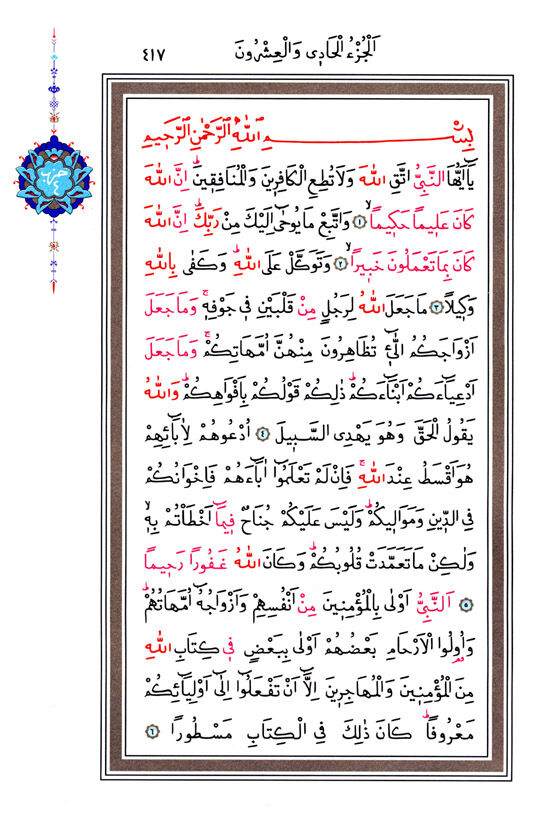 اَلْجُزْءُ الْحَادِى وَالْعِشْرُونَ
٤١٧
حزب
٤
بِسْمِ اللّٰهِ الرَّحْمٰنِ الرَّحٖيمِ
يَٓا اَيُّهَا النَّبِىُّ اتَّقِ اللّٰهَ وَلَا تُطِعِ الْكَافِرٖينَ وَالْمُنَافِقٖينَۜ اِنَّ اللّٰهَ
كَانَ عَلٖيمًا حَكٖيمًاۙ ﴿١﴾ وَاتَّبِعْ مَا يُوحٰٓى اِلَيْكَ مِنْ رَبِّكَۜ اِنَّ اللّٰهَ
كَانَ بِمَا تَعْمَلُونَ خَبٖيرًاۙ ﴿٢﴾ وَتَوَكَّلْ عَلَى اللّٰهِۜ وَكَفٰى بِاللّٰهِ
وَكٖيلًا ﴿٣﴾ مَا جَعَلَ اللّٰهُ لِرَجُلٍ مِنْ قَلْبَيْنِ فٖى جَوْفِهٖۚ وَمَا جَعَلَ
اَزْوَاجَكُمُ الّٰٓئٖ تُظَاهِرُونَ مِنْهُنَّ اُمَّهَاتِكُمْۚ وَمَا جَعَلَ
اَدْعِيَٓاءَكُمْ اَبْنَٓاءَكُمْۜ ذٰلِكُمْ قَوْلُكُمْ بِاَفْوَاهِكُمْۜ وَاللّٰهُ
يَقُولُ الْحَقَّ وَهُوَ يَهْدِى السَّبٖيلَ ﴿٤﴾ اُدْعُوهُمْ لِاٰبَٓائِهِمْ
هُوَ اَقْسَطُ عِنْدَ اللّٰهِۚ فَاِنْ لَمْ تَعْلَمُٓوا اٰبَٓاءَهُمْ فَاِخْوَانُكُمْ
فِى الدّٖينِ وَمَوَالٖيكُمْۜ وَلَيْسَ عَلَيْكُمْ جُنَاحٌ فٖيمَٓا اَخْطَأْتُمْ بِهٖۙ
وَلٰكِنْ مَا تَعَمَّدَتْ قُلُوبُكُمْۜ وَكَانَ اللّٰهُ غَفُورًا رَحٖيمًا
﴿٥﴾ اَلنَّبِىُّ اَوْلٰى بِالْمُؤْمِنٖينَ مِنْ اَنْفُسِهِمْ وَاَزْوَاجُهُٓ اُمَّهَاتُهُمْۜ
وَاُولُوا الْاَرْحَامِ بَعْضُهُمْ اَوْلٰى بِبَعْضٍ فٖى كِتَابِ اللّٰهِ
مِنَ الْمُؤْمِنٖينَ وَالْمُهَاجِرٖينَ اِلَّٓا اَنْ تَفْعَلُٓوا اِلٰٓى اَوْلِيَٓائِكُمْ
مَعْرُوفًاۜ كَانَ ذٰلِكَ فِى الْكِتَابِ مَسْطُورًا ﴿٦﴾